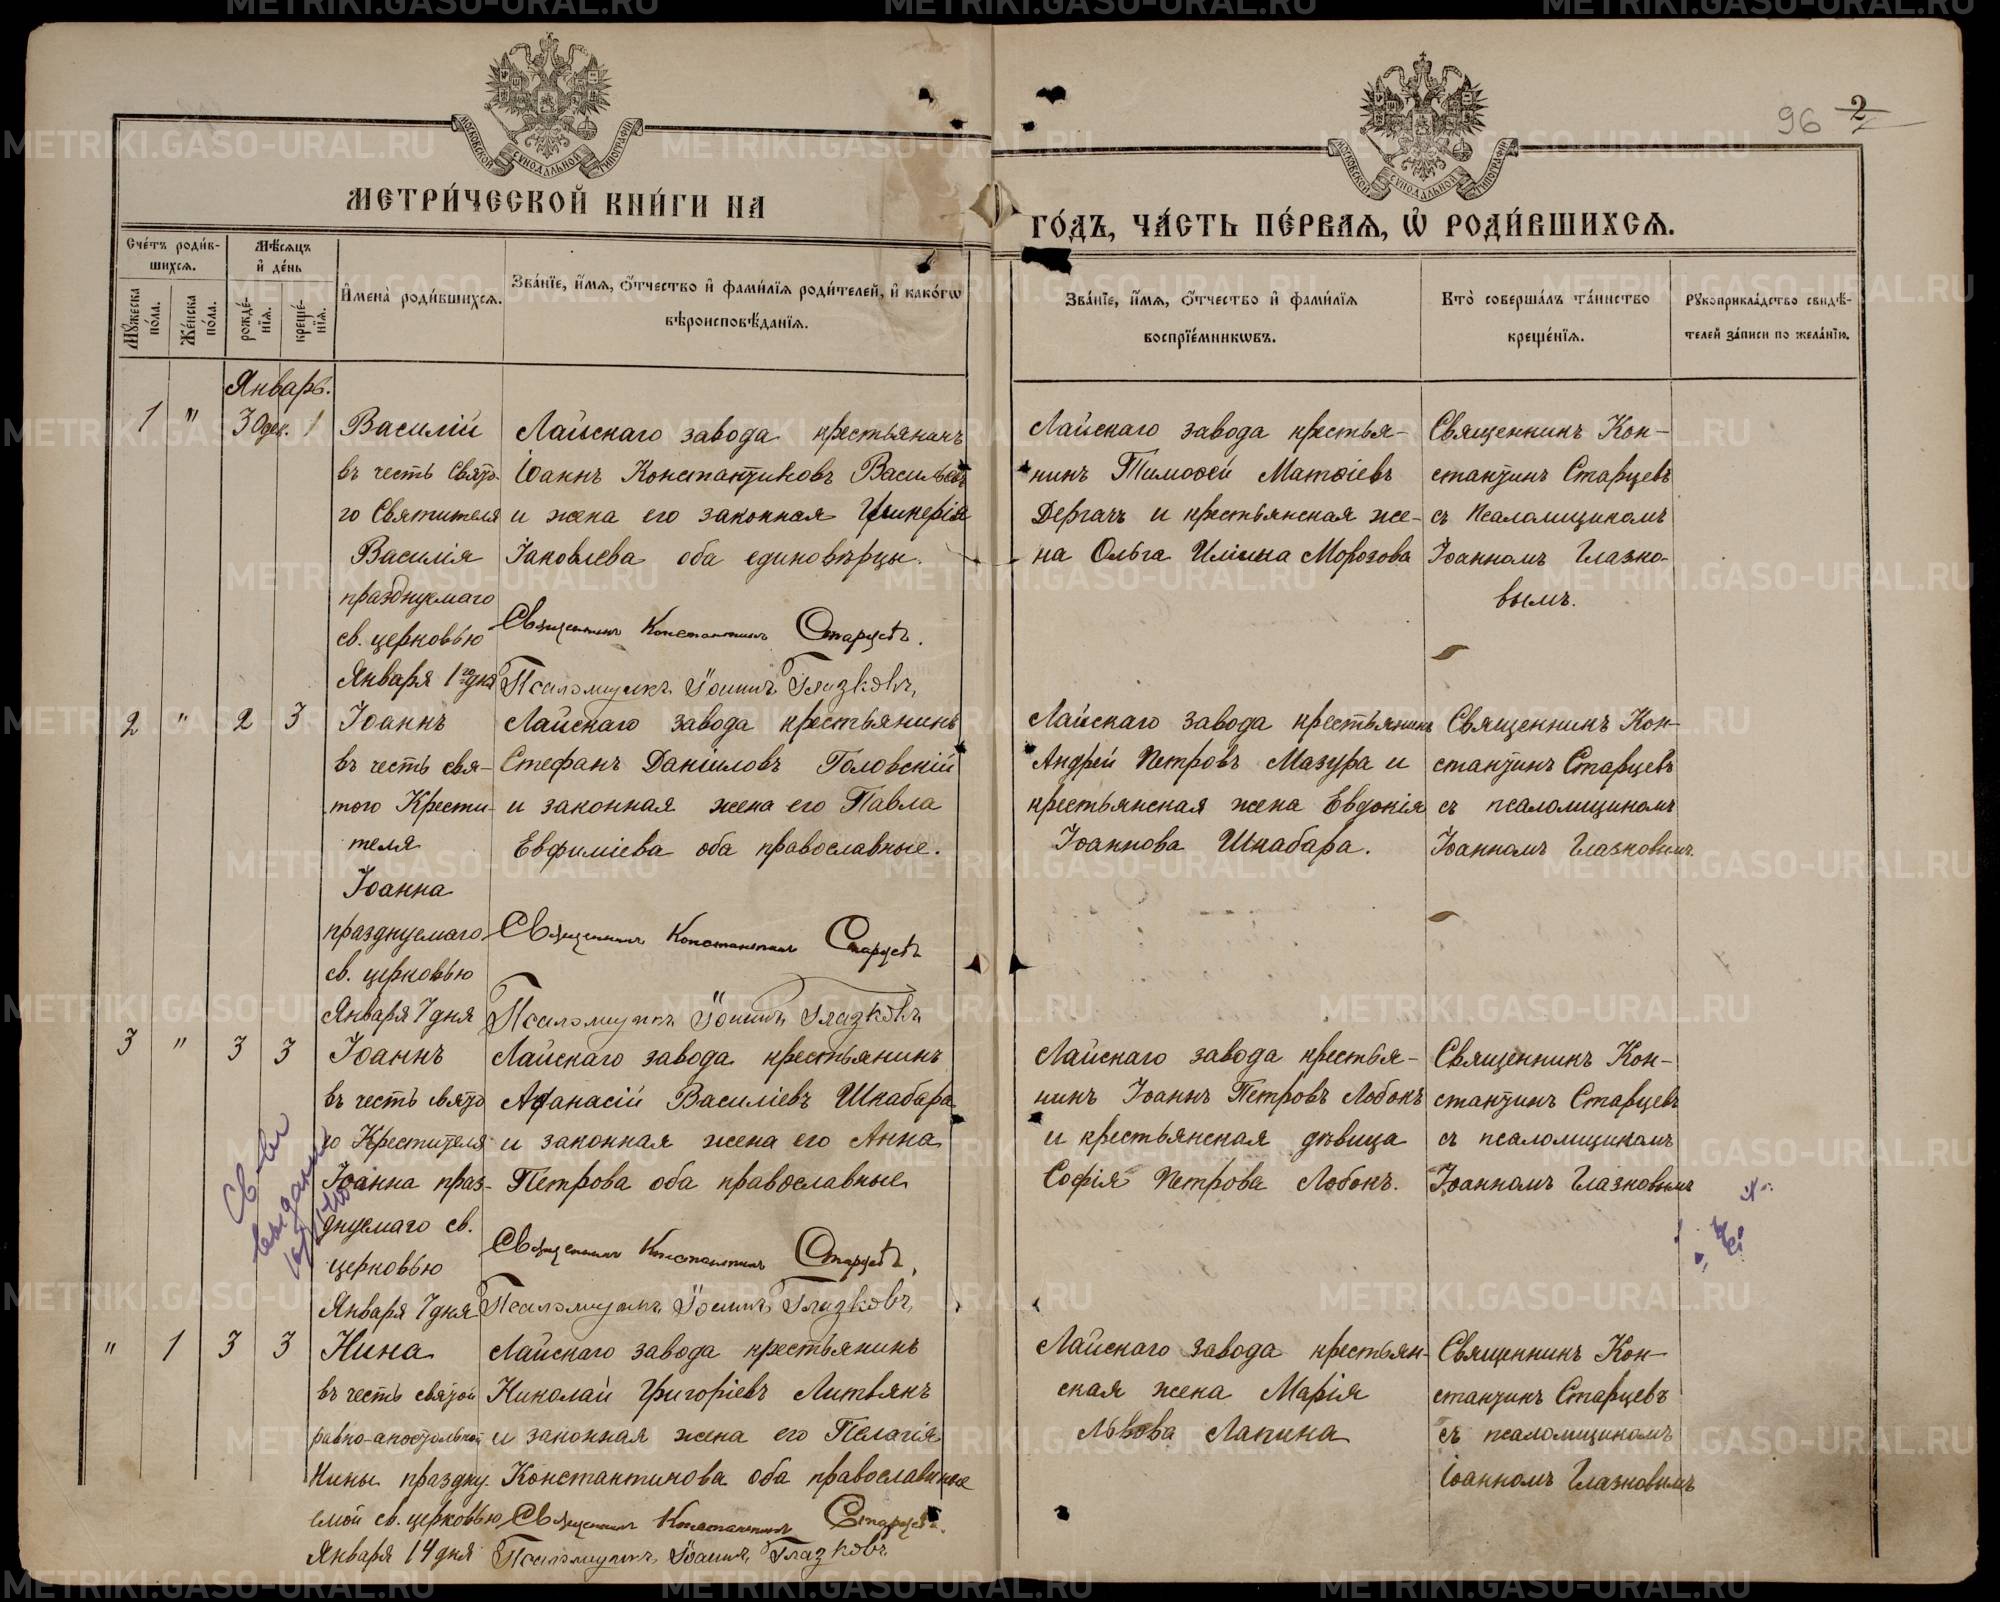 96 2
МЕТРИ́ЧЕСКОЙ КНИ́ГИ НА
ГО́ДЪ, ЧА́СТЬ ПЕ́РВАЯ, Ѡ҆ РОДИ́ВШИХСѦ.
Сче́тъ роди́в-
шихсѧ.
Мꙋ́жеска по́ла.
Же́нска по́ла.
Мѣ́сѧцъ
и҆ де́нь
рожде́-
нїѧ.
креще́-
нїѧ.
И҆мена̀ роди́вшихсѧ.
Зва́нїе, и҆́мѧ, ѻ҆́тчество и҆ фами́лїѧ роди́телей, и҆ како́гѡ
вѣроисповѣ́данїѧ.
Зва́нїе, и҆́мѧ, ѻ҆́тчество и҆ фами́лїѧ
воспрїе́мникѡвъ.
Кто̀ соверша́лъ та́инство
креще́нїѧ.
Рꙋкоприкла́дство свидѣ́-
телей за́писи по жела́нїю.
Январь.
1 " 30 дек. 1
Василій
въ честь Свято-
го Святителя
Василія
празднуемаго
св. церковью
Января 1го дня
Лайскаго завода крестьянинъ
Іоаннъ Константиновъ Васильевъ
и жена его законная Гликерія
Іаковлева оба единовѣрцы.
Священникъ Константинъ Старцевъ.
Псаломщикъ Іоаннъ Глазковъ,
Лайскаго завода крестья-
нинъ Тимоѳей Матѳіевъ
Дергачъ и крестьянская же-
на Ольга Иліина Морозова
Священникъ Кон-
стантинъ Старцевъ
съ псаломщикомъ
Іоанномъ Глазко-
вымъ.
2 " 2 3
Іоаннъ
въ честь свя-
того Крести-
теля
Іоанна
празднуемаго
св. церковью
Января 7 дня
Лайскаго завода крестьянинъ
Стефанъ Даніиловъ Головскій
и законная жена его Павла
Евфиміева оба православные.
Священникъ Константинъ Старцевъ
Псаломщикъ Іоаннъ Глазковъ
Лайскаго завода крестьянинъ
Андрей Петровъ Мазура и
крестьянская жена Евдокія
Іоаннова Шкабара.
Священникъ Кон-
стантинъ Старцевъ
съ псаломщикомъ
Іоанномъ Глазковымъ.
3 " 3 3
Іоаннъ
въ честь свято
го Крестителя
Іоанна праз-
днуемаго св.
церковью
Января 7 дня
Св-во
выдано
Лайскаго завода крестьянинъ
Аѳанасій Василіевъ Шкабара
и законная жена его Анна
Петрова оба православные
Священникъ Константинъ Старцевъ,
Псаломщикъ Іоаннъ Глазковъ,
Лайскаго завода крестья-
нинъ Іоаннъ Петровъ Лобокъ
и крестьянская дѣвица
Софія Петрова Лобокъ.
Священникъ Кон-
стантинъ Старцевъ
съ псаломщикомъ
Іоанномъ Глазковымъ
" 1 3 3
Нина
въ честь святой
равно-апостольной
Нины праздну-
емой св. церковью
Января 14 дня
Лайскаго завода крестьянинъ
Николай Григоріевъ Литвякъ
и законная жена его Пелагія
Константинова оба православные
Священникъ Константинъ Старцевъ.
Псаломщикъ Іоаннъ Глазковъ
Лайскаго завода крестьян-
ская жена Марія
Львова Лапина
Священникъ Кон-
стантинъ Старцевъ
съ псаломщикомъ
Іоанномъ Глазковымъ